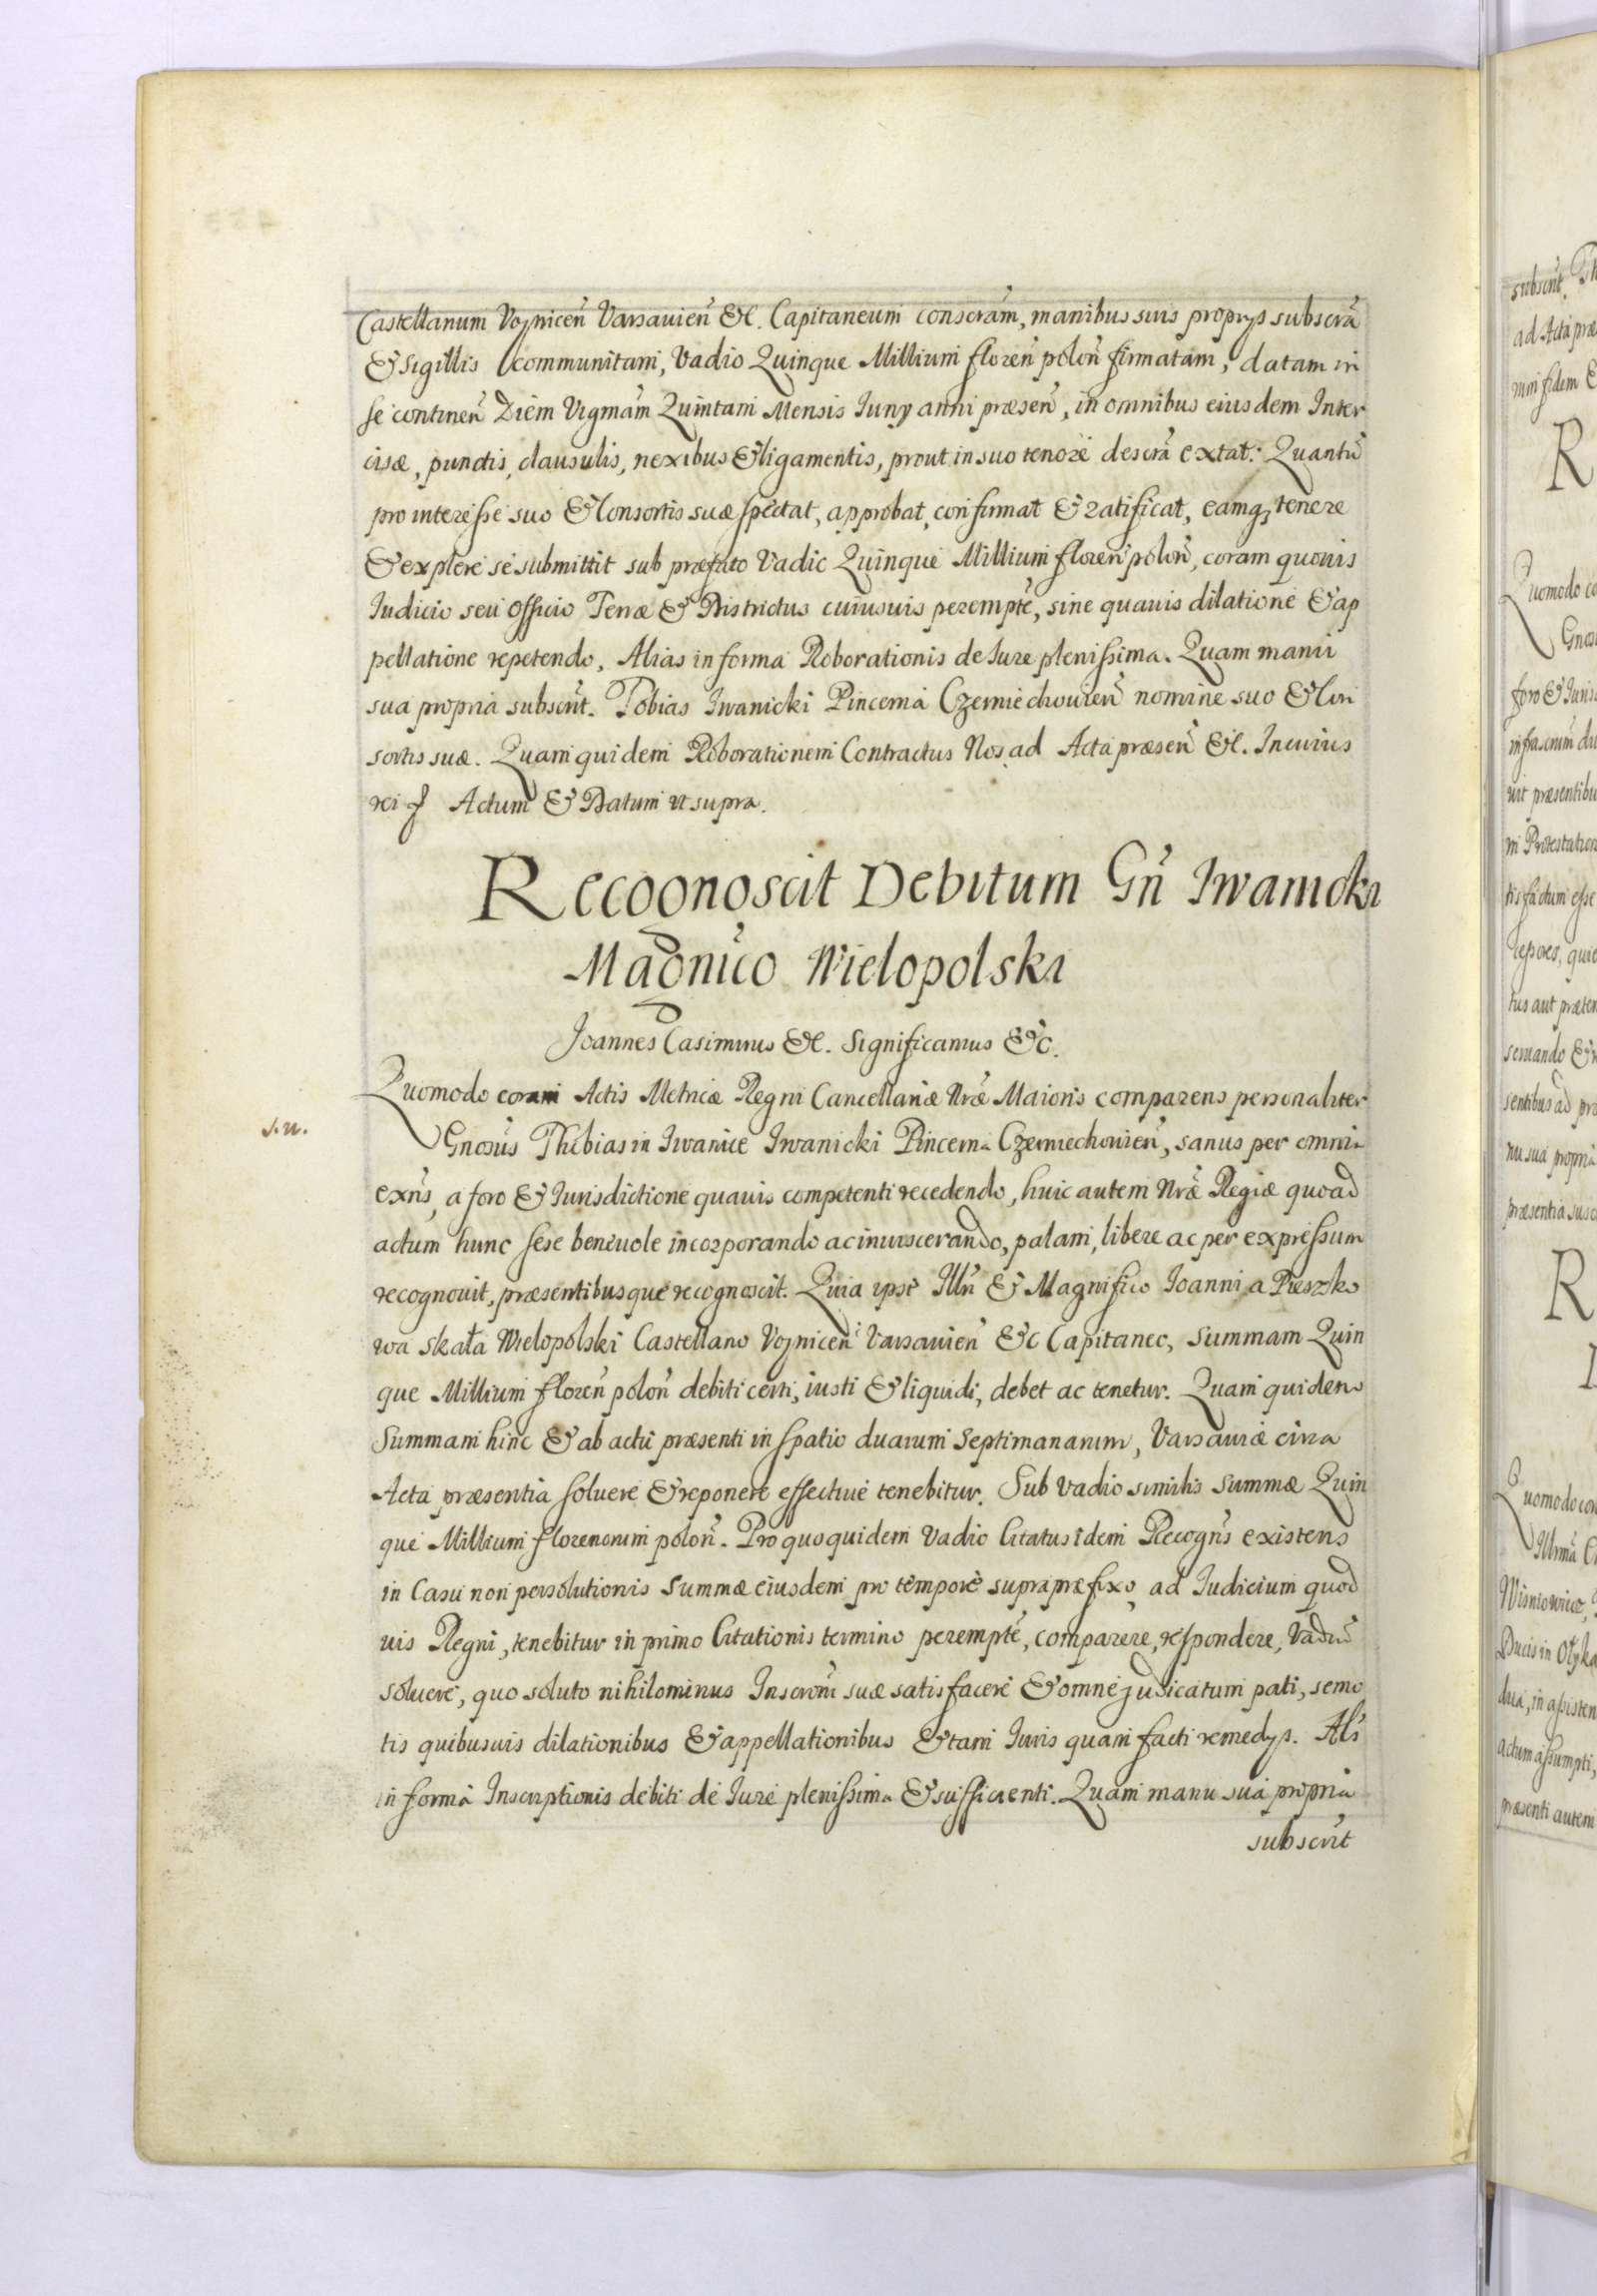 Castellanum Voynicen̄ Varsavien̄ &c. Capitaneum conscrām, manibus suis proprys subscrā
& Sigillis communitam, Vadio Quinque Millium floren̄ polon̄ firmatam, datam in
se continen̄ Diem Vigmām Quintam Mensis Iuny anni præsen̄, in omnibus eiusdem Inter
cisæ, punctis, clausulis, nexibus & ligamentis, prout in suo tenore descrā extat. Quantū
pro interesse suo & Consortis suæ spectat, approbat, confirmat & ratificat, eamq, tenere
& explere se submittit sub præfato Vadio Quinque Millium floren̄ polon̄, coram quovis
Iudicio seu Officio Terræ & Districtus cuiusvis perempte͂, sine quavis dilatione & ap
pellatione repetendo, Alias in forma Roborationis de Iure plenissima. Quam manu
sua propria subscrīt. Tobias Iwanicki Pincerna Czerniechovien̄ nomine suo & Con
sortis suæ. Quam quidem Roborationem Contractus Nos ad Acta præsen̄ &c. In cuius
rei f Actum & Datum ut supra.
Recognoscit Debitum Gn̄ Iwanicki
Magnīco Wielopolski
Joannes Casimirus &c. Significamus &c.
Quomodo coram Actis Metricæ Regni Cancellariæ Nrǣ Maioris comparens personaliter
s. n.
Gnosūs Thobias in Iwanice Iwanicki Pincerna Czerniechovien̄, sanus per omnia
exn̄s, a foro & Iurisdictione quavis competenti recedendo, huic autem Nrǣ Regiæ quoad
actum hunc sese benevole incorporando ac inviscerando, palam, libere ac per expressum
recognovit, præsentibusque recognoscit. Quia ipse Illn̄ & Magnifico Ioanni a Pieszko
wa skała Wielopolski Castellano Voynicen̄ Varsavien̄ &c Capitaneo, Summam Quin
que Millium floren̄ polon̄ debiti certi, iusti & liquidi, debet ac tenetur. Quam quidem
Summam hinc & ab actu præsenti in spatio duarum Septimanarum, Varsaviæ circa
Acta præsentia solvere & reponere effective tenebitur. Sub vadio similis Summæ Quin
que Millium florenorum polon̄. Pro quo quidem Vadio Citatus idem Recogn̄s existens
in Casu non persolutionis Summæ eiusdem pro tempore supra præfixo, ad Iudicium quod
vis Regni, tenebitur in primo Citationis termino perempte͂, comparere, respondere, Vadiū
solvere, quo soluto nihilominus Inscronī suæ satisfacere & omne judicatum pati, semo
tis quibusvis dilationibus & appellationibus & tam Iuris quam facti remedys. Als̄
in forma Inscriptionis debiti de Iure plenissima & sufficienti. Quam manu sua propria
subscrīt